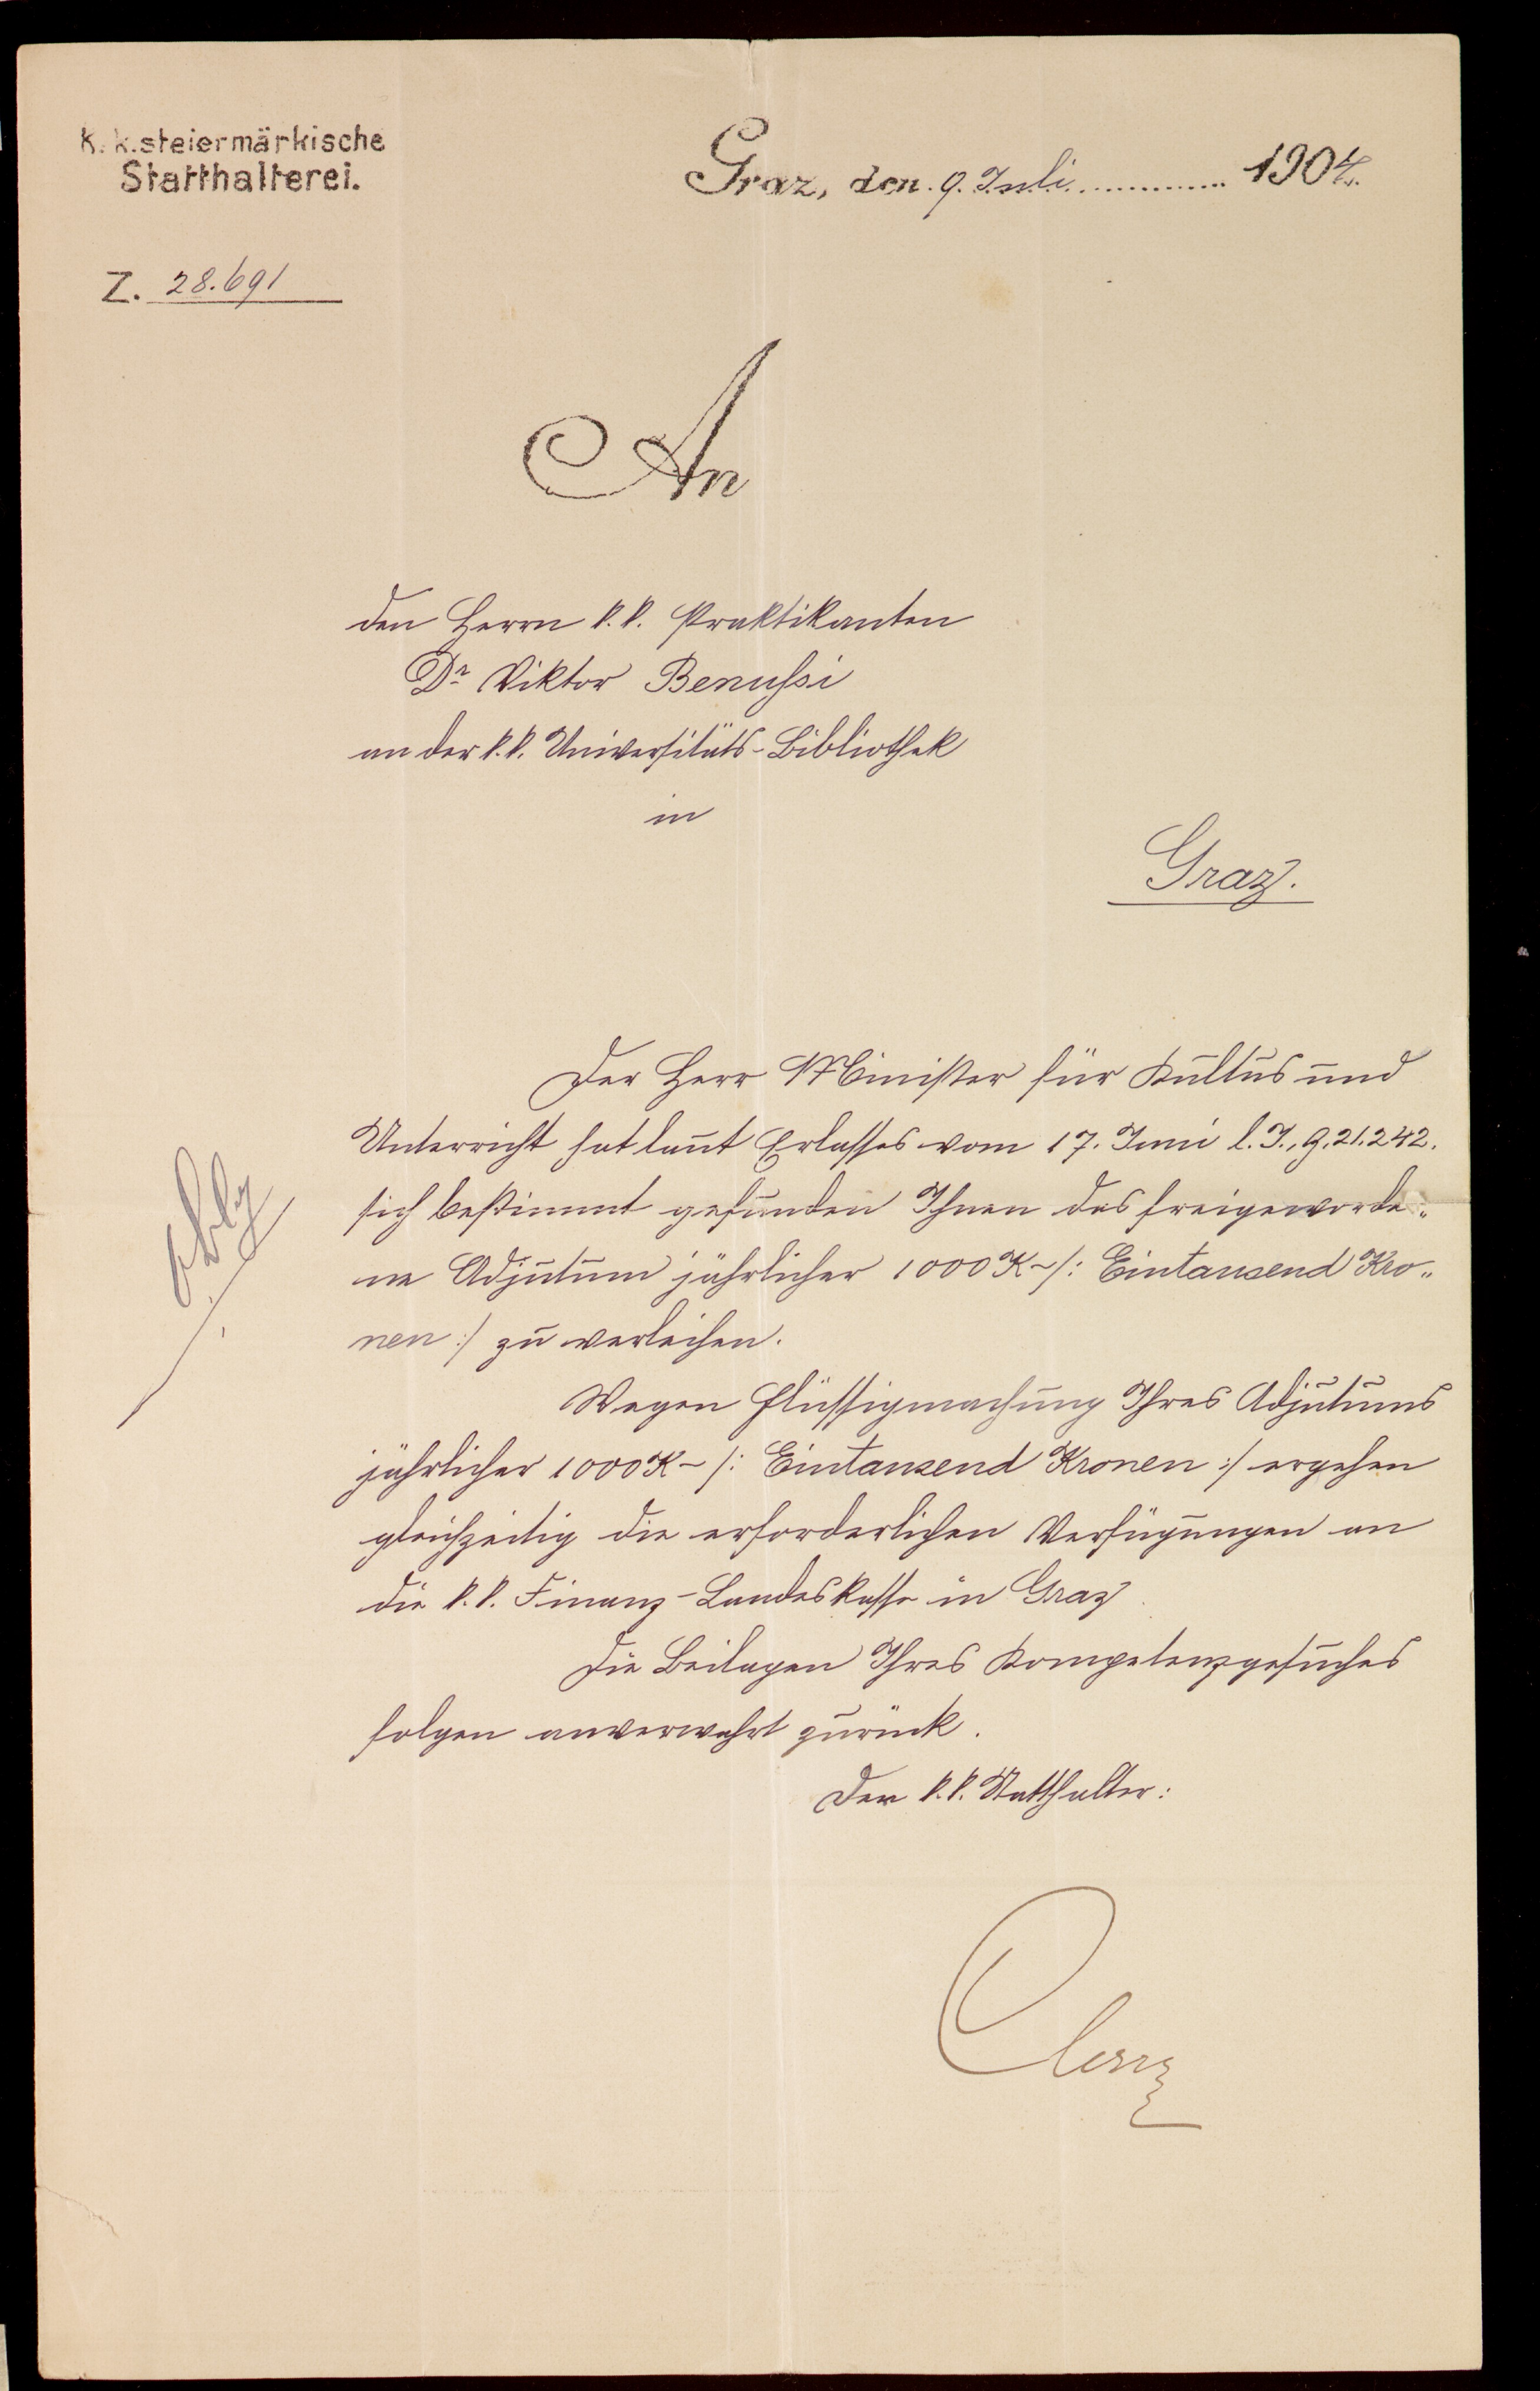 K. k. steiermärkische
Statthalterei.
Graz, den 9. Juli 1904.
Z. 28.691
An
den Herrn k. k. Praktikanten
Dr Viktor Benussi
an der k. k. Universitäts-Bibliothek
in
Graz.
Der Herr Minister für Kultus und
Unterricht hat laut Erlasses vom 17. Juni l. J., Z. 21.242.
sich bestimmt gefunden Ihnen das freigeworde„
ne Adjutum jährlicher 1000 K - /: Eintausend Kro„
nen :/ zu verleihen.
Wegen Flüssigmachung Ihres Adjutums
jährlicher 1000 K - /: Eintausend Kronen :/ ergehen
gleichzeitig die erforderlichen Verfügungen an
die k. k. Finanz-Landeskasse in Graz.
Die Beilagen Ihres Kompetenzgesuches
folgen anverwahrt zurück.
Der k. k. Statthalter:
Clary